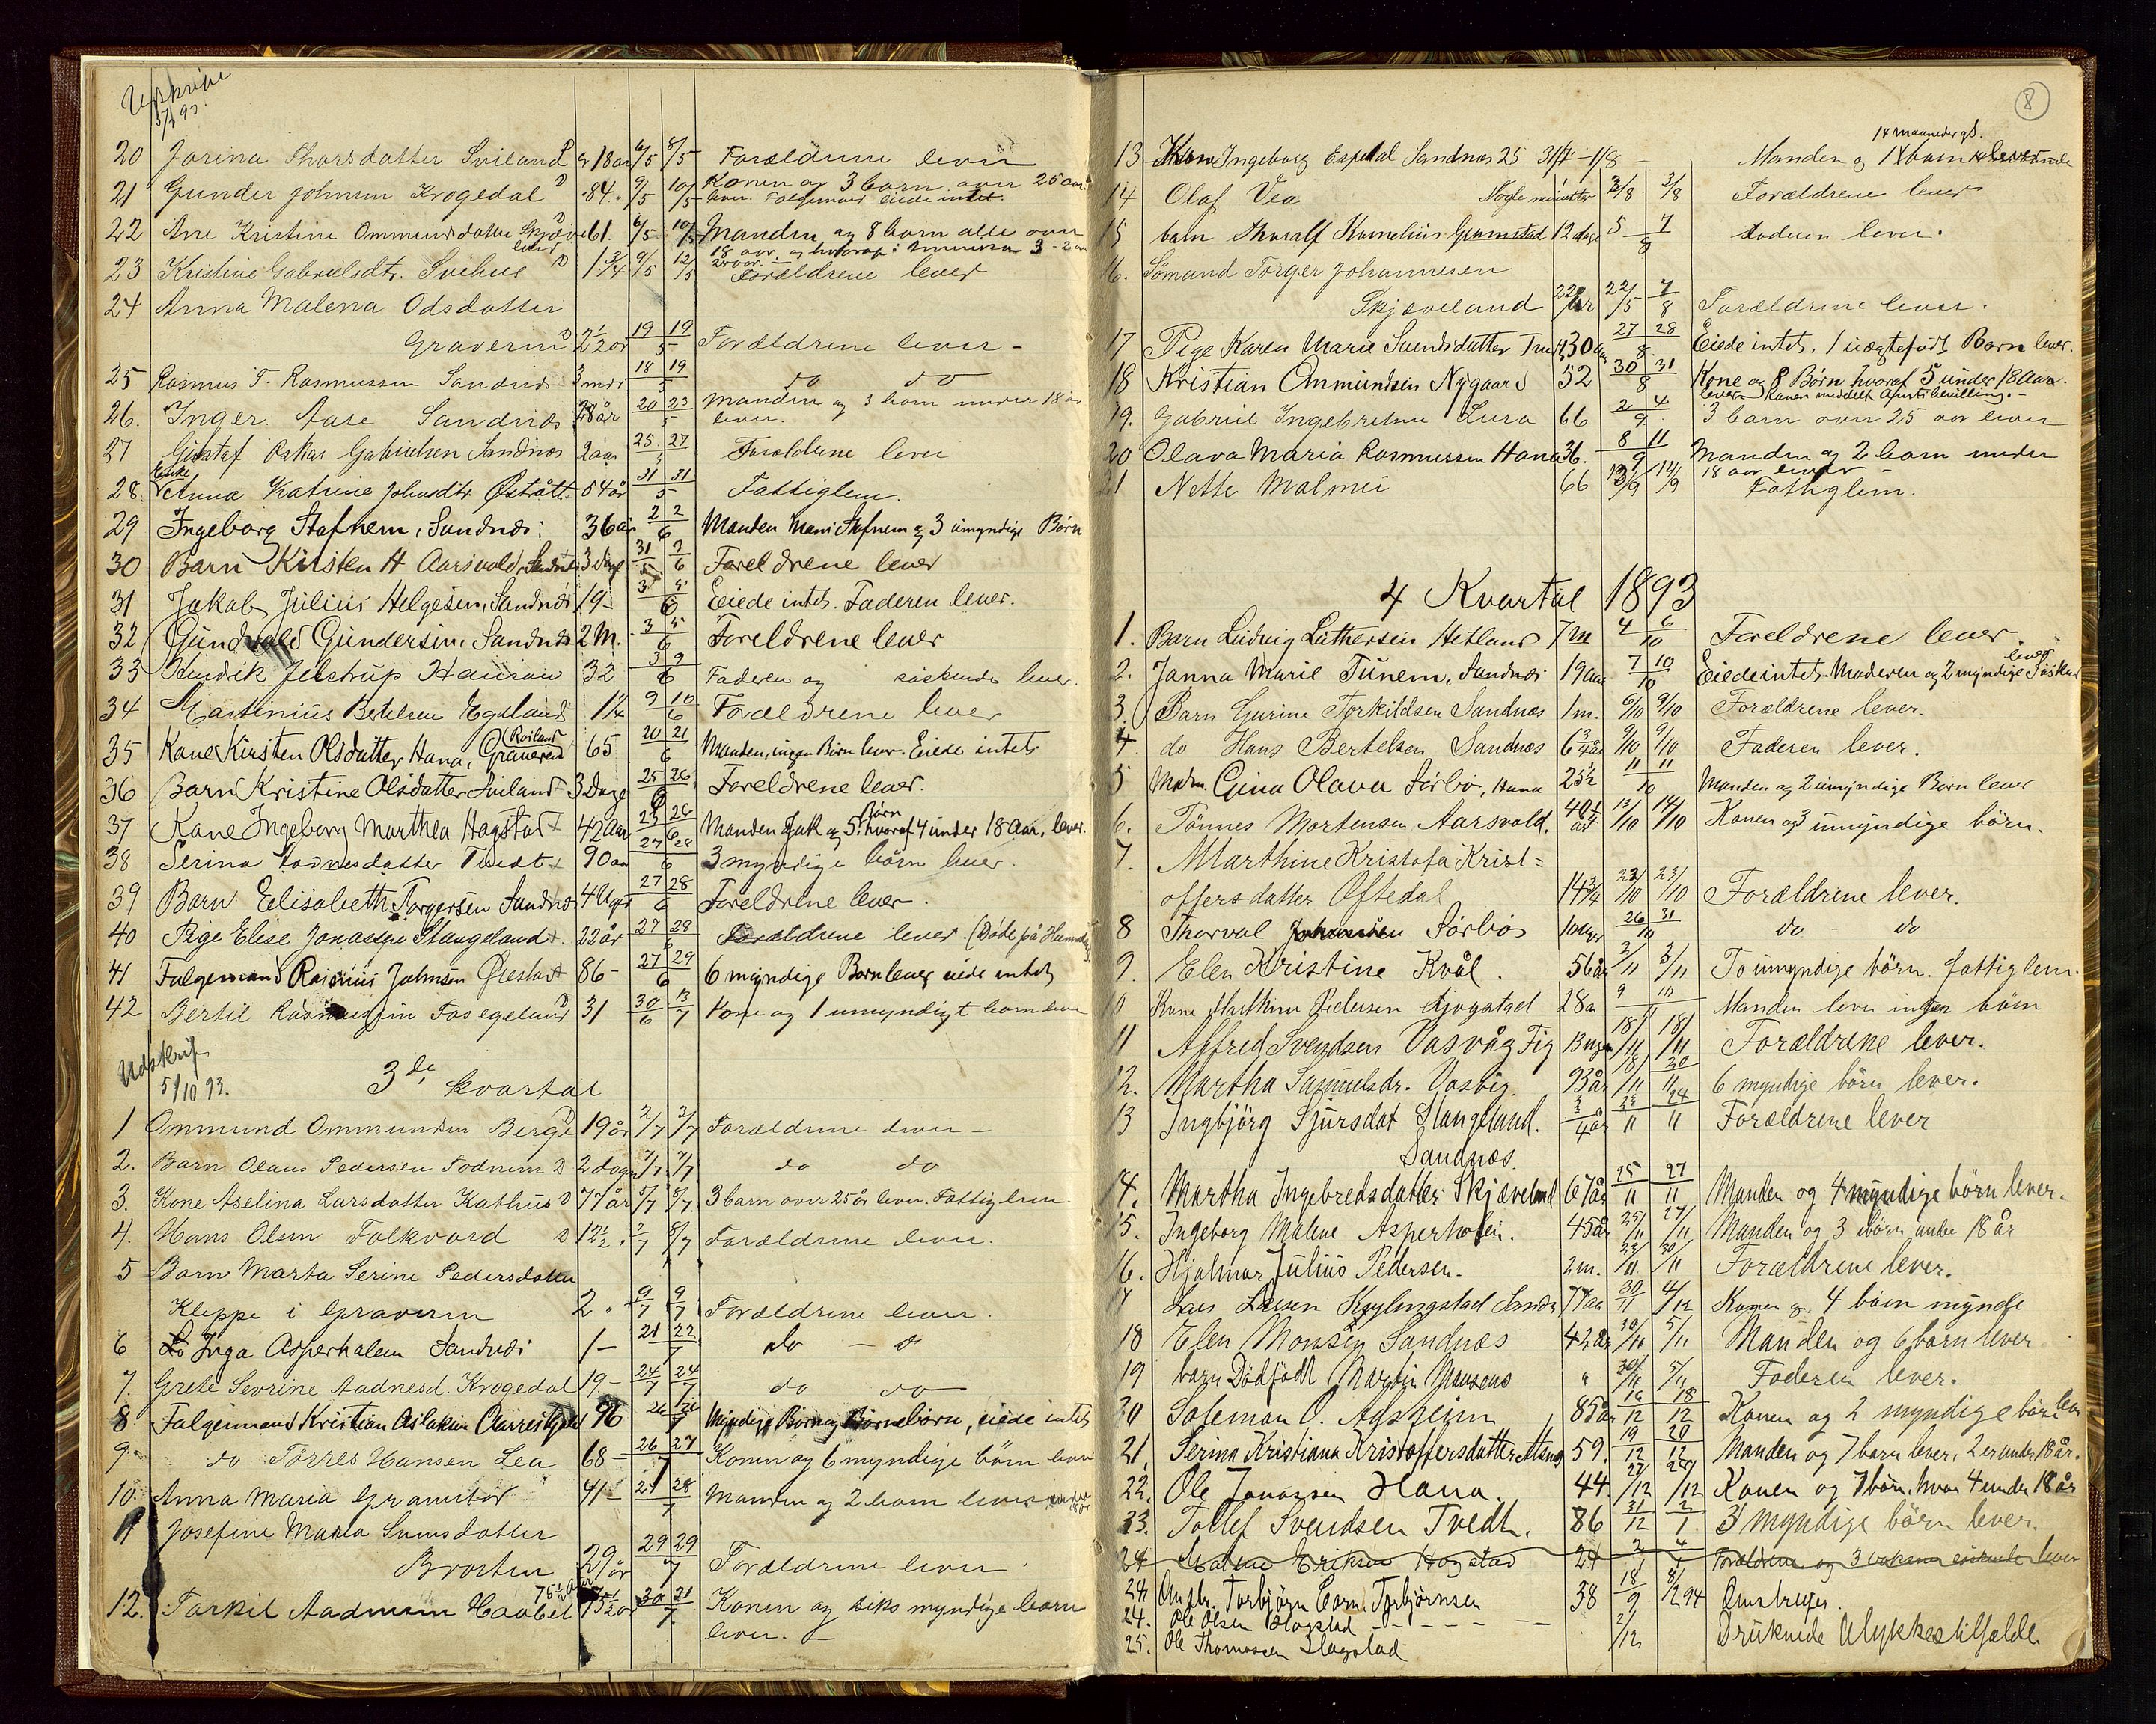 Udskrift
5/7 93.
20 Jorina Thorsdatter Sviland D 18 aar 6/5 8/5 Forældrene lever
21 Gunder Johnsen Krogedal D 84. 9/5 10/5 Konen og 3 barn over 25 aar
lever. Falgemand Eiede intet.
22 Ane Kristine Ommundsdatter Skjæve 61. 6/5 10/5 Manden og 8 barn alle over
land 18 aar. og hvoraf i Amerika 3
23 Kristine Gabrielsdtr. Svihus D 1 3/4 9/5 12/5 Forældrene lever
24 Anna Malena Odsdatter
Graveren D 2 1/2 år 19 19/5 Forældrene lever -
25 Rasmus T. Rasmussen Sandnæs 3 mdr 18 19/5 do do
26. Inger Aase Sandnæs 28 år 20 23/5 Manden og 3 barn under 18 år
lever.
27 Gustaf Oskar Gabrielsen Sandnæs 2 aar 25 27/5 Forældrene lever
28. Enke Anna Katrine Johnsdtr Østrått 54 år 31 31/5 Fattiglem.
29 Ingeborg Stafnem, Sandnæs: 36 år 2 2/6 Manden Mons Stafnem og 3 umyndige Børn
30 Barn Kirsten H Aarsvold, Sandnæs 3 Dage 31/5 3/6 Foreldrene lever
31 Jakob Julius Helgesen, Sandnæs 19- 3 5/6 Eiede intet. Faderen lever.
32 Gundvald Gundersen, Sandnæs 2 M. 3 5/6 Foreldrene lever
33 Hendrik Jelstrup Hansen 32 3 9/6 Faderen og søskende lever.
34 Martinius Betelsen Egeland 1 1/4 9 10/6 Forældrene lever
35 Kone Kirsten Olsdatter Hana, (Roiland) Graveren 65 20 21/6 Manden, ingen Børn lever. Eiede intet
36 Barn Kristine Olsdatter Sviland 3 Dage 25 26/6 Foreldrene lever.
37 Kone Ingeborg Marthea Hogstad + 42 Aar 23 26/6 Manden Jak og 5 Børn hvoraf 4 under 18 Aar, lever.
38 Serina Tvedt + 90 aar 27 28/6 3 myndige børn lever.
39 Barn Elisabeth Torgersen Sandnæs 4 Uger 27 28/6 Foreldrene lever.
40 Pige Elise Jonassen Stangeland + 22 år 27 29/6 Forældrene lever. (Døde på
41 Falgemand Rasmus Johnsen + 86- 27 29/6 6 myndige Børn lever eiede intet
42 Bertil Rasmussen Fosegeland D 31 30/6 3/7 Kone og 1 umyndigt barn lever
Udskrif
5/10 93.
3de kvartal
1 Ommund Ommundsen Berge D 19 år 2/7 3/7 Forældrene lever -
2. Barn Olaus Pedersen Fodnem D 2 døgn 7/7 7/7 do do
3. Kone Aselina Larsdatter Kathus D 77 år 5/7 8/7 3 barn over 25 år lever. Fattiglem.
4. Hans Olsen Folkvord D 12 1/2. 7/7 8/7 Forældrene lever.
5 Barn Marta Serine Pedersdatter
Kleppe i Graveren 2. 9/7 9/7 Forældrene lever.
6 Inga Asperhalem Sandnæs 1- 21 22/7 do - o
7. Grete Sevrine Aadnesd. Krogedal 19.- 24/7 24/7 do do
8 Falgemand Kristian Aslaksen 96 26 26/7 Myndige Børn og Børnebørn, eiede intet
9. do Tørres Hansen Lea 68- 26 27/7 Konen og 6 myndige børn lever
10. Anna Maria Gramstad 41- 21 28/7 Manden og 2 barn lever under 18 år
11 Josefine Maria Svensdatter
Brosten 29 år 29 29/7 Forældrene lever
12. Torkil Aadnesen Haabet 75 1/2 år 30 31/7 Konen og seks myndige barn
lever.
8
13 Kone Ingeborg Espedal Sandnæs 25 31/7 - 1/8 - Manden og 1 barn 14 maaneder gl. lever
14 Olaf Vea Nogle minutter 2/8 3/8 Forældrene lever
15 barn Thoralf Kornelius Gramstad 12 dage 5 7/8 Moderen lever.
16. Sømund Torger Johannesen
Skjæveland 22 år 22/5 7/8 Forældrene lever.
17 Pige Karen Marie Svendsdatter 30 aar 27 28/8 Eiede intet. 1 uægtefødt Barn lever.
18 Kristian Ommundsen Nygaard 52 30 31/8 Kone og 8 Børn hvoraf 5 under 18 Aar
lever. Konen meddelt Uskiftebevilling. -
19. Gabriel Ingebretsen Lura 66 2 4/9 3 barn over 25 aar lever
20 Olava Maria Rasmussen Hana 36. 8 11/9 Manden og 2 barn under
18 aar lever -
21 Nette Malmei 66 13/9 14/9 Fattiglem.
4 Kvartal 1893
1. Barn Ludvig Luthersen Hetland 7 m 4 6/10 Foreldrene lever.
2. Janna Marie Tunem, Sandnæs 19 aar 7 10/10 Eiede intet. Moderen og 2 myndige Søsken lever
3. Barn Gurine Torkildsen Sandnæs 1 m. 6/10 9/10 Forældrene lever.
4. do Hans Bertelsen Sandnæs 6 3/4 år 9/10 9/10 Faderen lever.
5 Mdm. Gina Olava Sørbø, Hana 25 1/2 11 11/10 Manden og 2 umyndige Børn lever
6. Tønnes Mortensen Aarsvold. 40 1/4 år 13/10 14/10 Konen og 3 umyndige børn.
7. Marthine Kristofa Krist=
offersdatter Oftedal 14 3/4 22/10 23/10 Forældrene lever.
8 Thorval Johansen Sørbø 10 uger 26 31/10 do - do
9. Elen Kristine Kvål. 56 år 2/11 3/11 To umyndige børn. fattiglem.
10 Kone Marthine Pedersen Gjogstad 28 a 9 10/11 Manden lever ingen børn
11 Alfred Svendsen Vasvåg Fig 13 uger 18/11 18/11 Forældrene lever.
12. Martha Samuelsdr. Vasvig. 93 år 18/11 20/11 6 myndige børn lever.
13 Ingbjörg Sjursdat Stangeland. 3/4 år 23/11 24/11 Forældrene lever
Sandnæs.
14. Martha Ingebredsdatter Skjæveland 67 år 25/11 27/11 Manden og 4 myndige børn lever.
15. Ingeborg Malene Asperholen. 45 år 25/11 27/11 Manden og 3 børn under 18 år
16. Hjalmar Julius Pedersen. 2 m. 28/11 30/11 Forældrene lever.
17 Lars Larsen Kyllingstad Sandn 77 aa 30/11 4/12 Konen og 4 børn mynde
18 Elen Monsen Sandnæs 42 år 30/11 5/11 Manden og 6 barn lever
19 barn Dødfødt Martin Hansens " 30/11 5/11 Faderen lever.
20 Soleman O. Adsheim 85 år 16/12 18/12 Konen og 2 myndige børn lever
21. Serina Kristiana Kristoffersdatter 59. 19/12 20/12 Manden og 7 barn lever, 2 er under 18 år.
22. Ole Jonassen Hana. 44 27/12 28/12 Konen og 7 børn. hvor 4 under 18 år
23. Tollef Svendsen Tvedt. 86 31/12 2/1 3 myndige børn lever.
24 Malene Eriksen Hogstad 24 2/1 4/1 Forældrene og 3 voksne søskende lever
24 Torbjörn Torbjørnsen 38 18/9 8/1 294
24. Ole Olsen Hogstad - - - - -
25. Ole Thomassen Hogstad 2/12 Druknede Ulykkestilfælde.